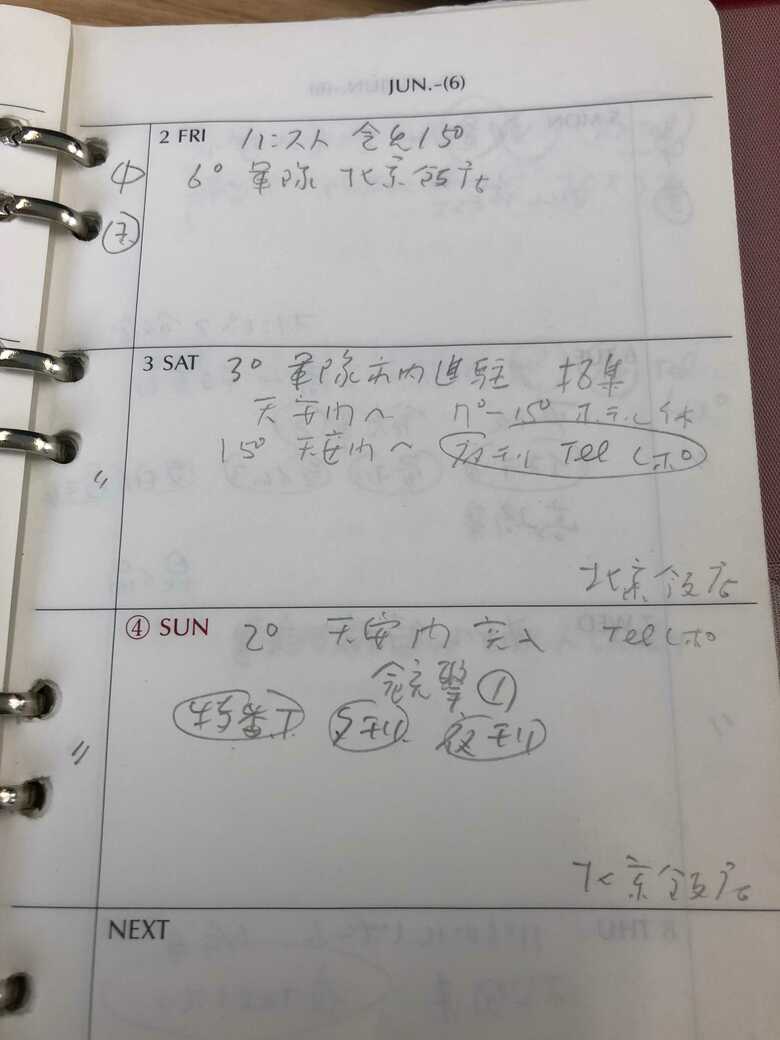 JUN.-(6)
2 FRI ハンスト 会见 15°
中 6° 軍隊 北京飯店
3 SAT 3° 軍隊市内進駐 招集
天安门へ 11°-15° ホテル 休
〃 15° 天安门へ 夜刊 Tel レポ
北京飯店
④ SUN 2° 天安门 突入 Tel レポ
銃撃 ①
〃 夕刊 夜刊
北京飯店
NEXT